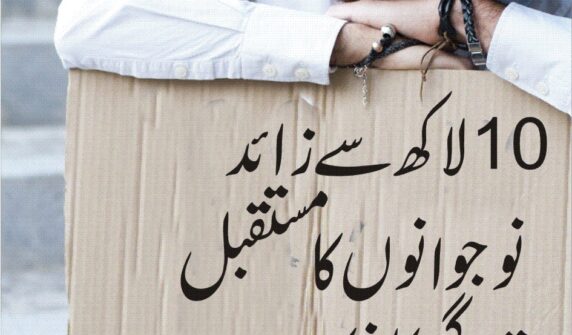 10 لاکھ سے زائد
نوجوانوں کا مستقبل